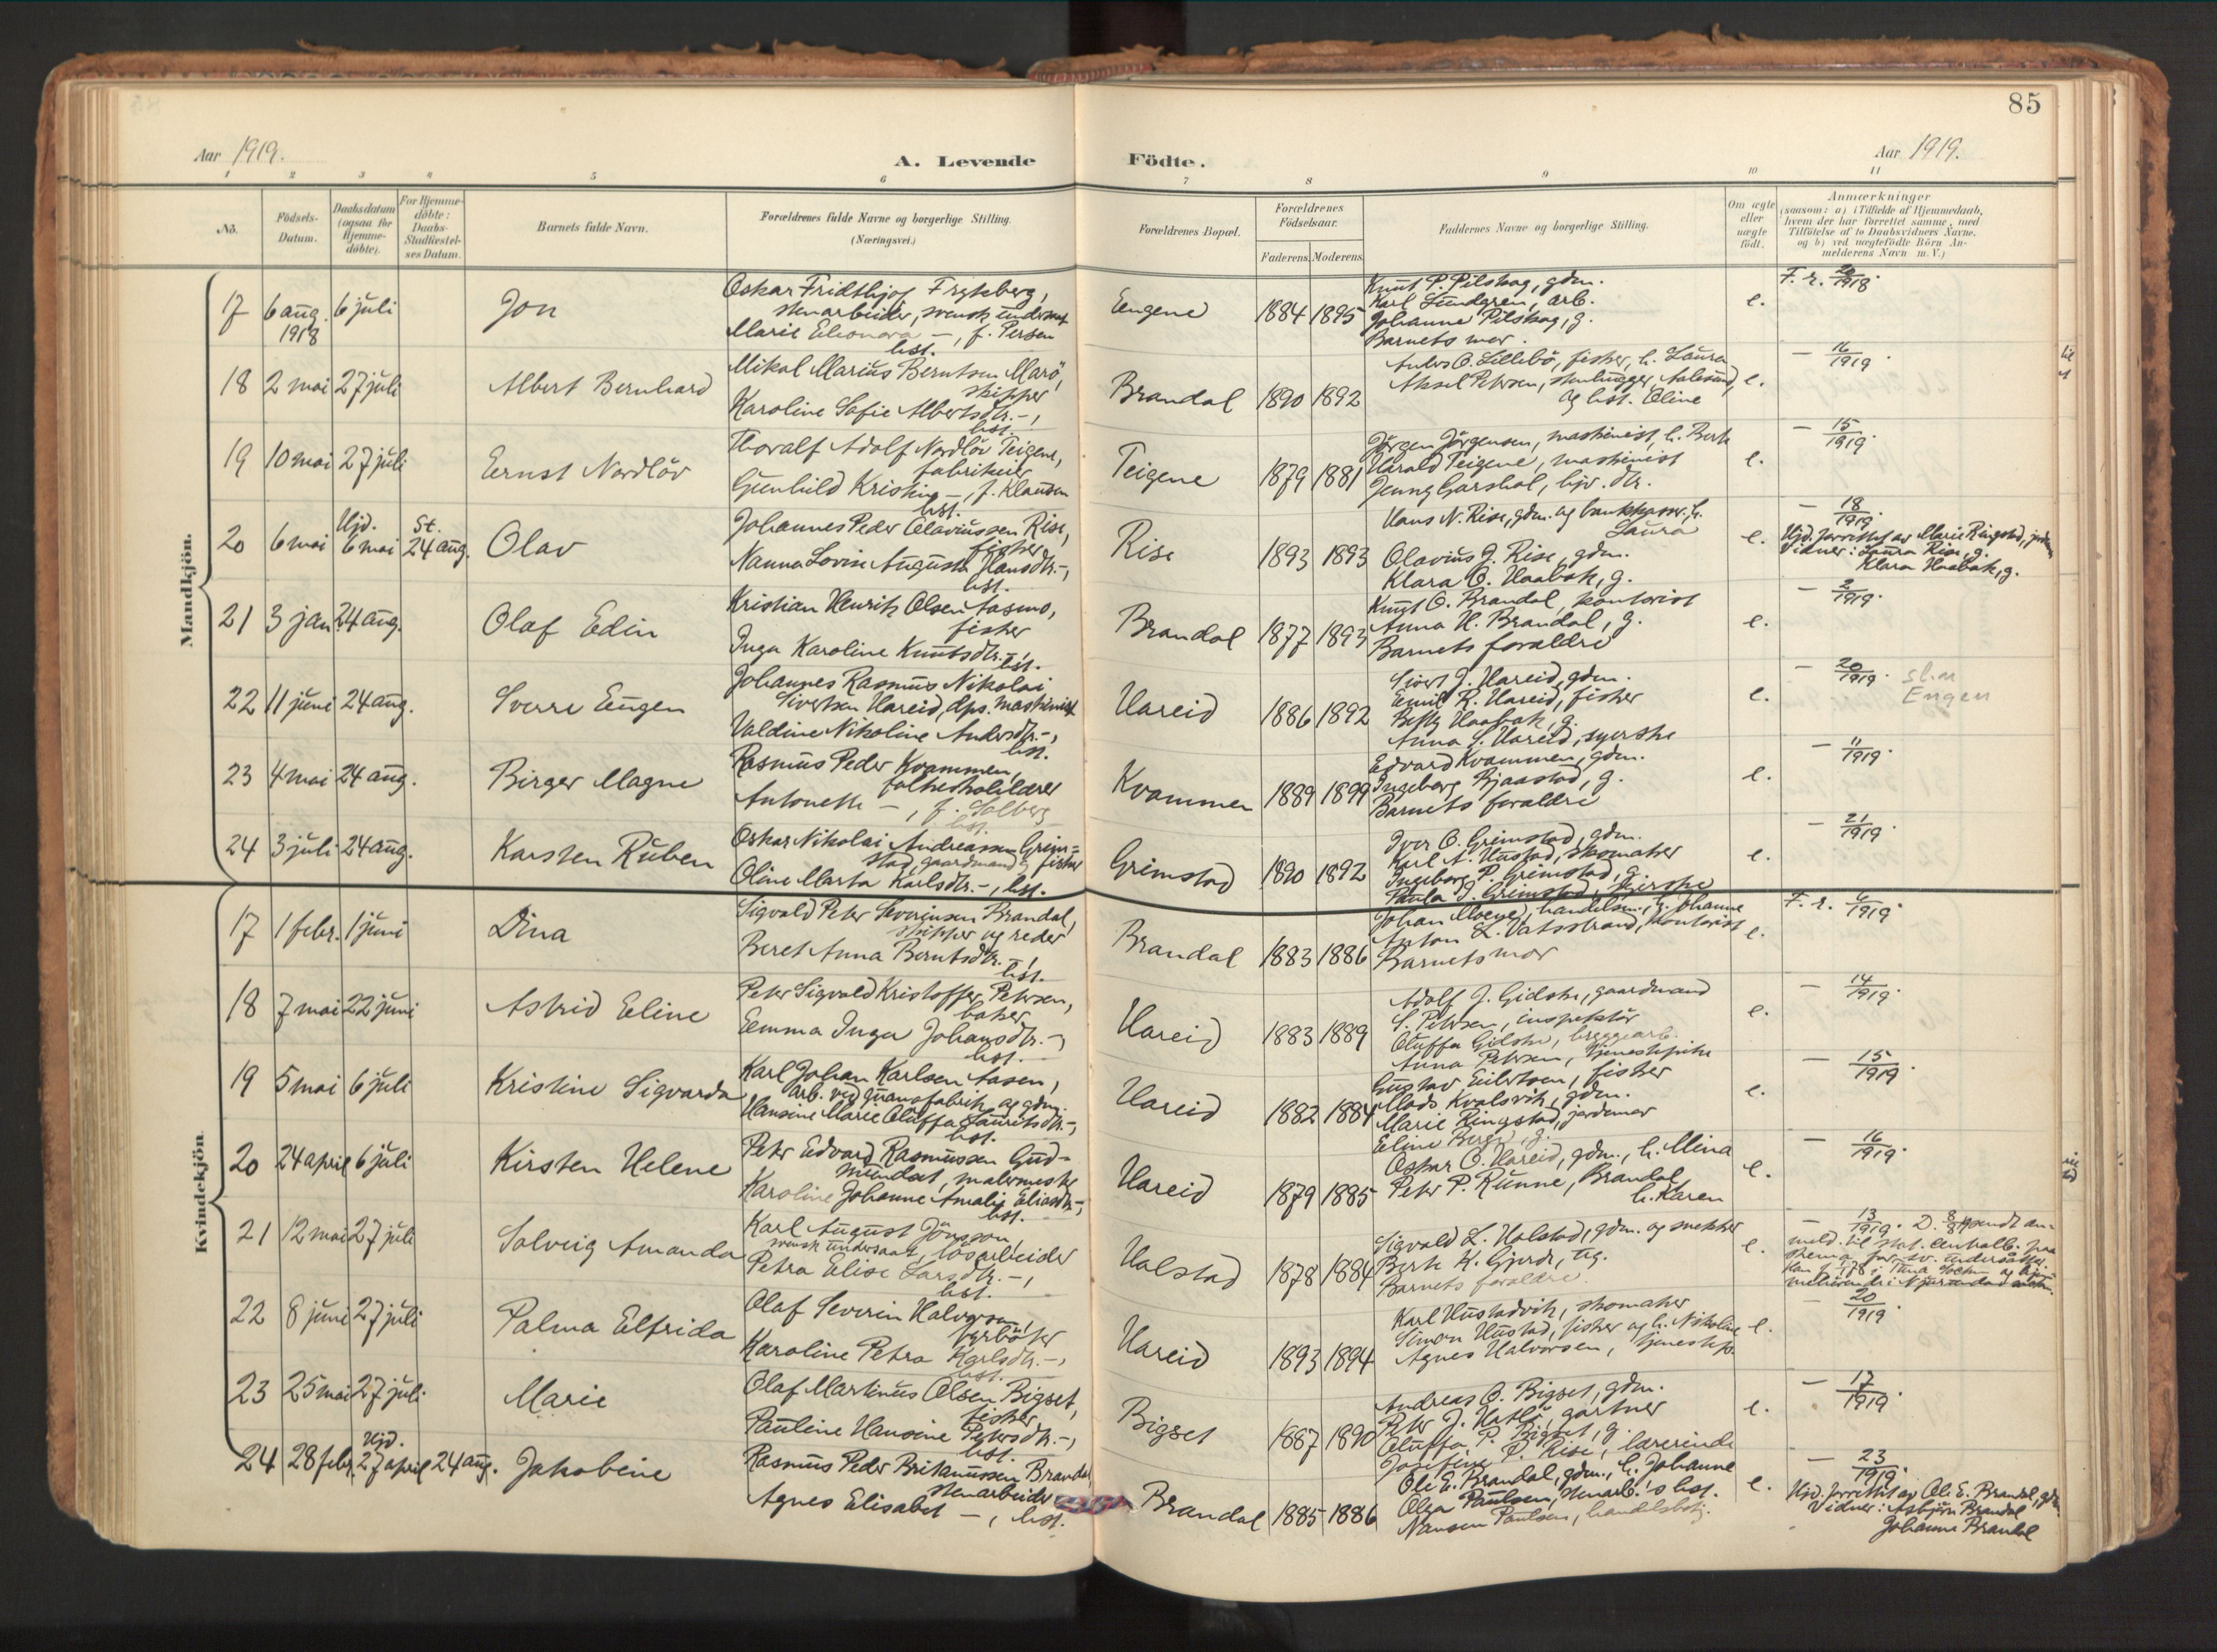 85
Aar 1919.
A. Levende
Födte.
Aar 1919.
1 2 3 4 5 6 7 8 9 10 11
No.
Födsels-
Datum.
Daabsdatum
(ogsaa for
Hjemme-
döbte).
For Hjemme-
döbte:
Daabs-
Stadfæstel-
ses Datum.
Barnets fulde Navn.
Forældrenes fulde Navne og borgerlige Stilling.
(Næringsvei.)
Forældrenes Bopæl.
Forældrenes
Födselsaar.
Faderens. Moderens.
Faddernes Navne og borgerlige Stilling.
Om ægte
eller
uægte
födt.
Anmærkninger
(saasom: a) i Tilfælde af Hjemmedaab,
hvem der har forrettet samme, med
Tilföielse af to Daabsvidners Navne,
og b) ved uægtefödte Börn An-
melderens Navn m. V.)
Mandkjön.
17 6 aug. 1918 6 juli
Jon
Oskar Fridthjof Frykberg,
stenarbeider, svensk undersaat
Marie Eleonora —, f. Persen
hst.
Eugene
1884 1895
Knut P. Pilskog, gdm.
Karl Lundgren, arb.
Johanne Pilskog, g.
Barnets mor.
e.
F. r. 20/1918.
18 2 mai 27 juli
Albert Bernhard
Mikal Marius Berntsen Marö,
skipper
Karoline Sofie Albertsdtr. —,
hst.
Brandal
1890 1892
Anders O. Lillebö, fisker, h. Laura
Aksel Petersen, stenhugger Aalesund,
og hst. Oline
e.
— 16/1919.
19 10 mai 27 juli
Ernst Nordlöv
Thoralf Adolf Nordlöv Teigene,
fabrikeier
Gunhild Kristine —, f. Klausen
hst.
Teigene
1879 1881
Jörgen Jörgensen, maskinist, h. Berte
Harald Teigene, maskinist
Jenny Garshol, hjv. dtr.
e.
— 15/1919.
20 6 mai Hjd. 6 mai St. 24 aug.
Olav
Johannes Peder Olaviussen Rise,
fisker
Nanna Lovise Augusta Hansdtr. —,
hst.
Rise
1893 1893
Hans N. Rise, gdm. og bankkasser, h.
Laura
Olavius J. Rise, gdm.
Klara O. Haabak, g.
e.
— 18/1919.
Hjd. forrettet av Marie Ringstad, jordm.
Vidner: Laura Rise, g.
Klara Haabak, g.
21 3 jan. 24 aug.
Olaf Edin
Kristian Henrik Olsen Aasmo,
fisker
Inga Karoline Knutsdtr. —,
hst.
Brandal
1877 1893
Knut O. Brandal, kontorist
Anna H. Brandal, g.
Barnets foraldre
e.
— 2/1919.
22 11 juni 24 aug.
Sverre Eugen
Johannes Rasmus Nikolai
Sivertsen Hareid, dps. maskinist
Valdine Nikoline Andersdtr. —,
hst.
Hareid
1886 1892
Sivert J. Hareid, gdm.
Emil R. Hareid, fisker
Betty Haabak, g.
Anna S. Hareid, syerske
e.
— 20/1919.
Engen
23 4 mai 24 aug.
Birger Magne
Rasmus Peder Kvammen,
folkeskolelærer
Antonette —, f. Solberg
hst.
Kvammen
1889 1899
Edvard Kvammen, gdm.
Ingeborg Bjaastad, g.
Barnets foraldre
e.
— 11/1919.
24 3 juli 24 aug.
Karsten Ruben
Oskar Nikolai Andreassen Grim=
stad, gaardmand og fisker
Oline Marta Karlsdtr. —, hst.
Grimstad
1890 1892
Iver O. Grimstad, gdm.
Karl A. Hustad, skomaker
Ingeborg P. Grimstad, g.
Paula J. Grimstad,
e.
— 21/1919.
Kvindekjön.
17 1 febr. 1 juni
Dina
Sigvald Peter Severinsen Brandal,
skipper og reder
Beret Anna Berntsdtr. —,
hst.
Brandal
1883 1886
Johan Moene, handelsm., h. Johanne
Anton L. Vatsstrand, kontorist
Barnets mor
e.
F. r. 6/1919.
18 7 mai 22 juni
Astrid Eline
Peter Sigvald Kristoffer Petersen,
baker
Emma Inga Johansdtr. —,
hst.
Hareid
1883 1889
Adolf J. Gidske, gaardmand
S. Petersen, inspektör
Oluffa Gidske, bryggearb.
Anna Petersen, tjenestepike
e.
— 14/1919.
19 5 mai 6 juli
Kristine Sigvarda
Karl Johan Karlsen Aasen,
arb. ved guanofabrik og gdm.
Hansine Marie Oluffa Lauritsdtr. —,
hst.
Hareid
1882 1884
Gustav Eilertsen, fisker
Mads Kvalsvik, gdm.
Marie Ringstad, jordemor
Eline Berge, g.
e.
— 15/1919.
20 24 april 6 juli
Kirsten Helene
Peter Edvard Rasmussen Gud-
mundset, malermester
Karoline Johanne Amalie Eliasdtr. —,
hst.
Hareid
1879 1885
Oskar O. Hareid, gdm., h. Mina
Peter P. Runne, Brandal
h. Karen
e.
— 16/1919.
21 12 mai 27 juli
Solveig Amanda
Karl August Jönsson,
svensk undersaat, lösarbeider
Petra Elise Larsdtr. —,
hst.
Halstad
1878 1884
Sigvald L. Halstad, gdm. og snekker
Berte K. Gjerde, ug.
Barnets foraldre.
e.
— 13/1919. D. 8/8 sendt an-
meld. til stat. Centralb. paa
skema for sv. undersåtter.
22 8 juni 27 juli
Palma Elfrida
Olaf Severin Halvorsen,
Karoline Petra Karlsdtr. —,
hst.
Hareid
1893 1894
Karl Hustadvik, skomaker
Simon Hustad, fisker og h. Nikoline
Agnes Halvorsen, tjenestep.
e.
— 20/1919.
23 25 mai 27 juli
Marie
Olaf Martinus Olsen Bigset,
fisker
Pauline Hansine Petersdtr. —,
hst.
Bigset
1887 1890
Andreas O. Bigset, gdm.
Peter J. Hatlö, gartner
Oluffa P. Bigset, g.
Josefine P. Rise, lærerinde
e.
— 17/1919.
24 28 febr. Hjd. 27 april 24 aug.
Jakobine
Rasmus Peder Britanussen Brandal
stenarbeider
Agnes Elisabet —, hst.
Brandal
1885 1886
Ole E. Brandal, gdm., h. Johanne
Olga Paulsen, stenarb.'s hst.
Nansen Paulsen, handelsbetj.
e.
— 23/1919.
Hjd. forrettet av Ole E. Brandal, gdm.
Vidner: Asbjörn Brandal
Johanne Brandal